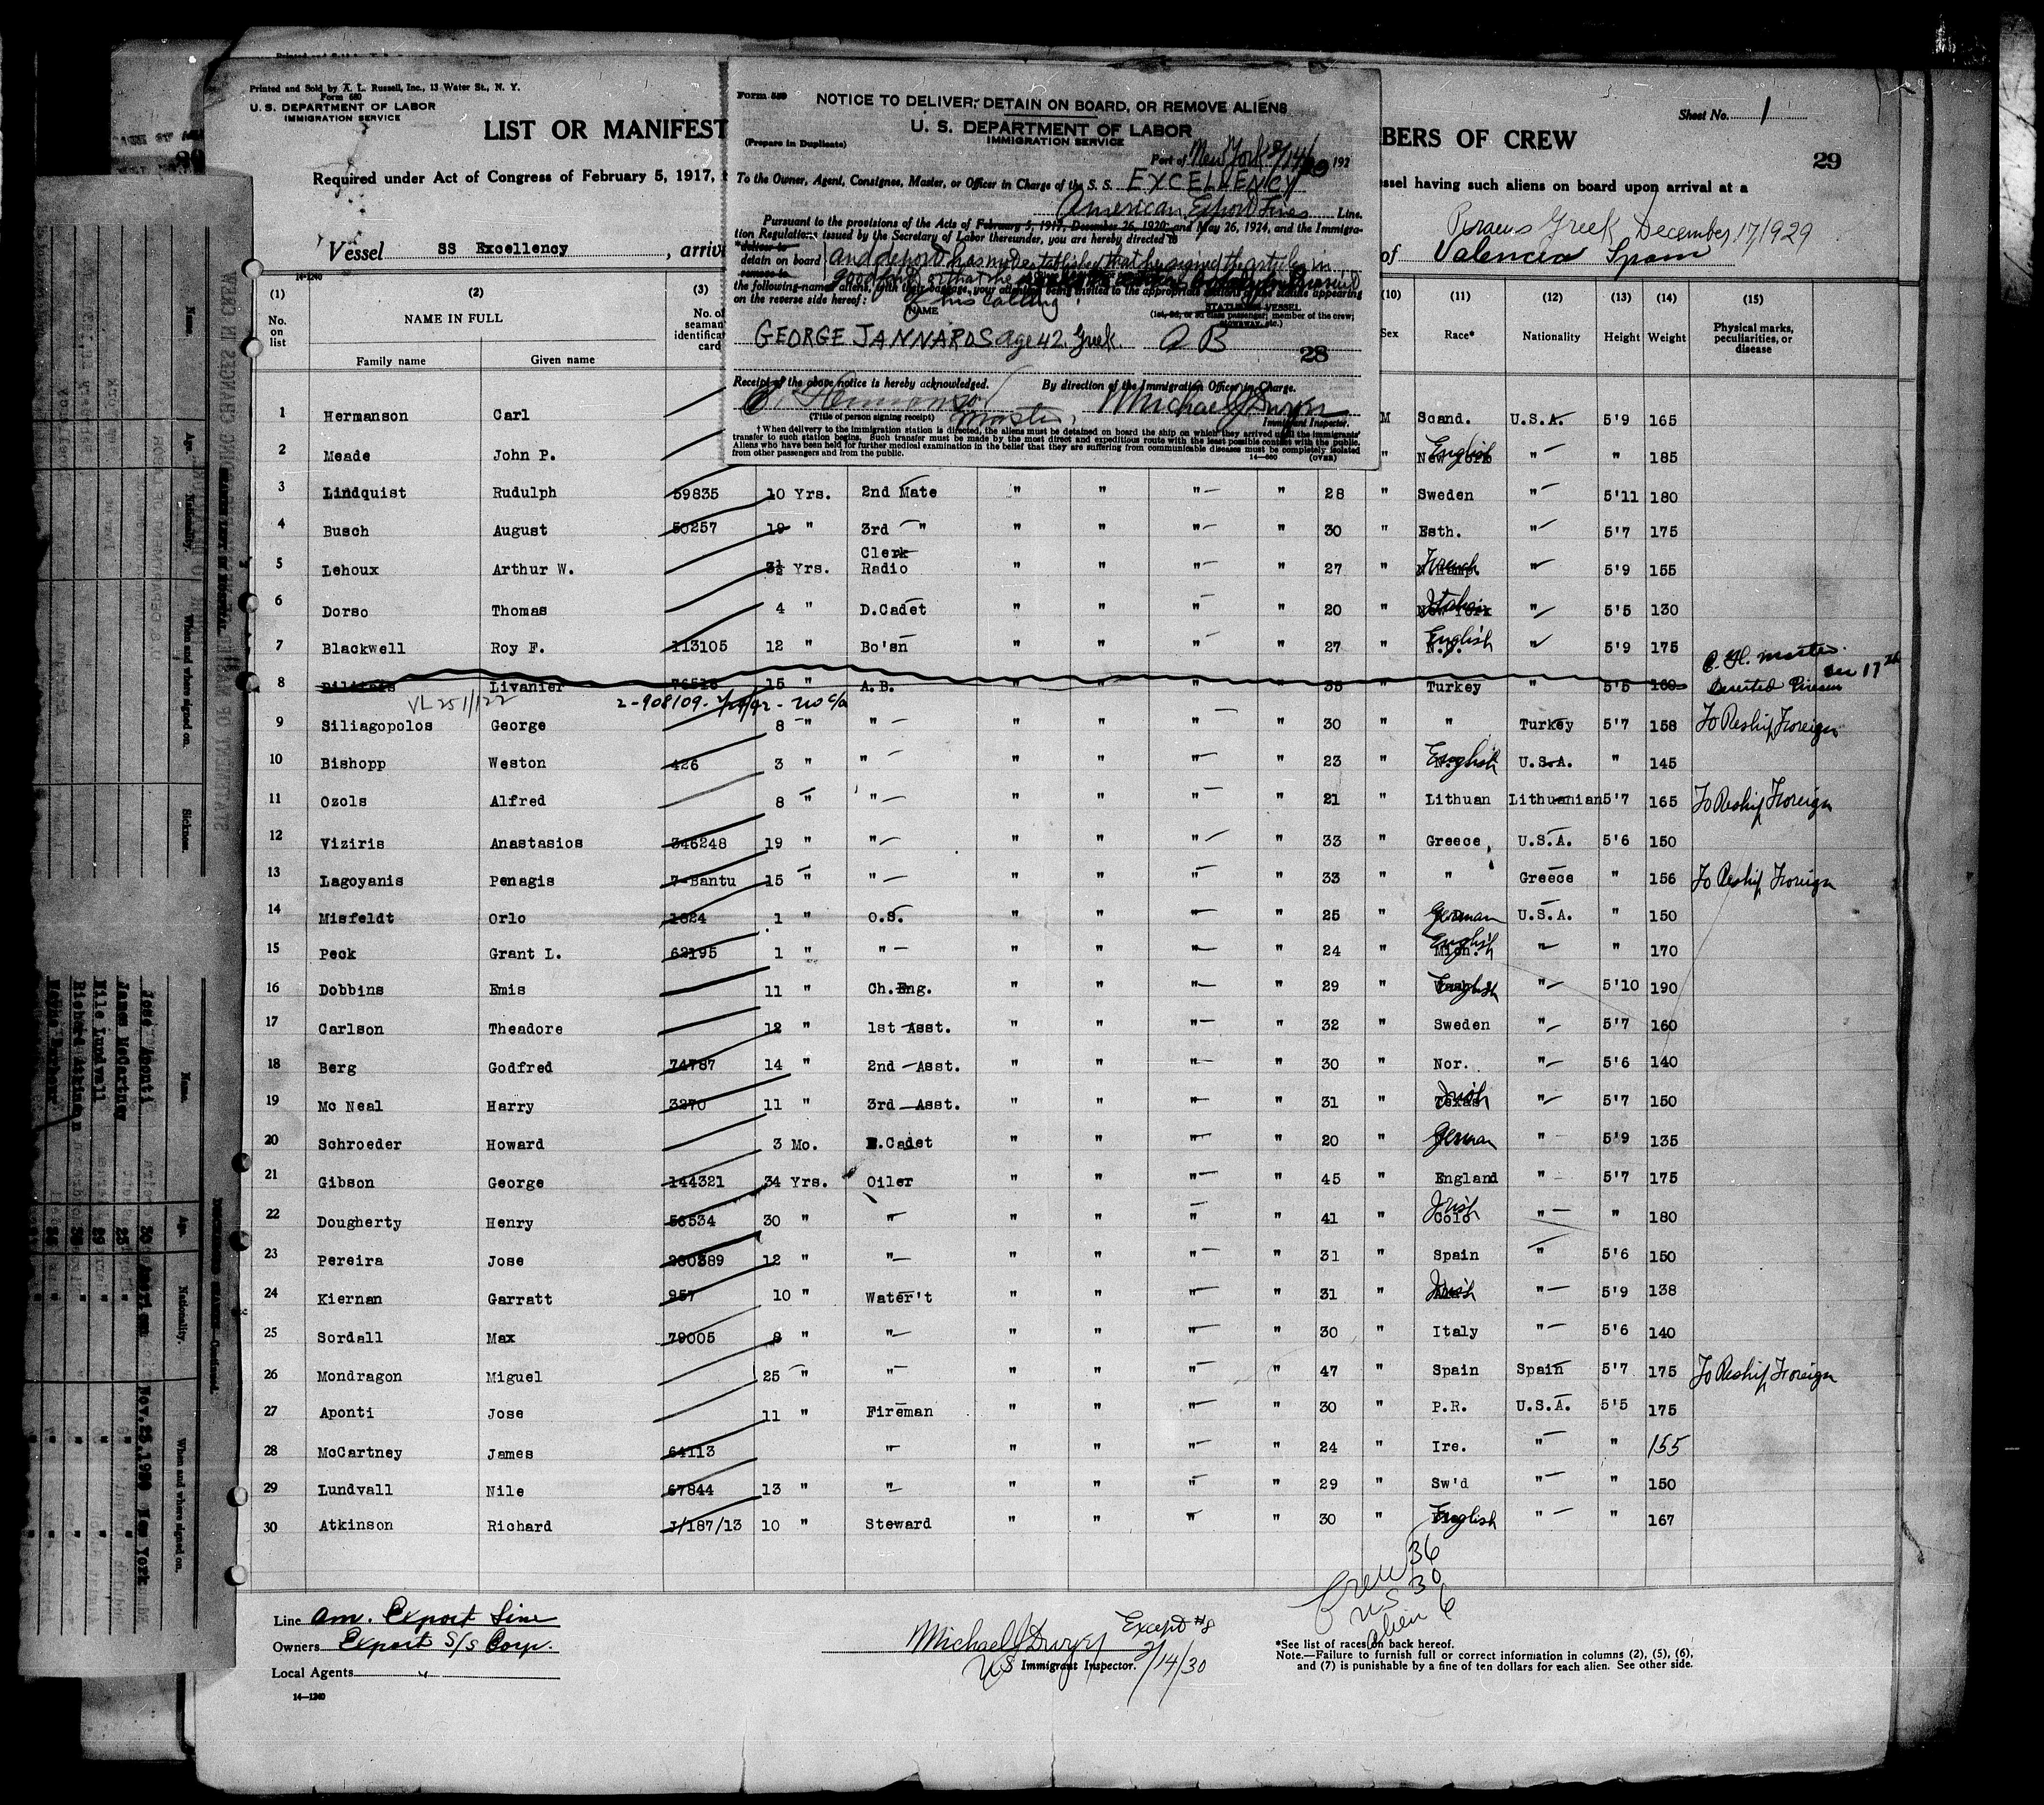 Printed and Sold by A. L. Russell, Inc., 13 Water St., N. Y.
Form 680
U. S. DEPARTMENT OF LABOR
IMMIGRATION SERVICE
Sheet No. 1
LIST OR MANIFEST
BERS OF CREW
29
Required under Act of Congress of February 5, 1917,
ssel having such aliens on board upon arrival at a
Greek December 17, 1929
Vessel SS Excellency , arriv
of Valencia Spain
Form 580
NOTICE TO DELIVER, DETAIN ON BOARD, OR REMOVE ALIENS
U. S. DEPARTMENT OF LABOR
IMMIGRATION SERVICE
(Prepare in Duplicate)
Port of New York 2/14/30 192
To the Owner, Agent, Consignee, Master, or Officer in Charge of the S. S. EXCELLENCY
American Export Lines Line.
Pursuant to the provisions of the Acts of February 5, 1917, December 26, 1920, and May 26, 1924, and the Immigra-
tion Regulations issued by the Secretary of Labor thereunder, you are hereby directed to
*deliver to
detain on board and deport has not established that he signed the articles in
remove to
good faith or that he
the following-named aliens, with their baggage, your attention being invited to the appropriate sections of the statute appearing
on the reverse side hereof: of his calling
NAME
STATUS ON VESSEL
(1st, 2d, or 3d class passenger; member of the crew;
stowaway, etc.)
GEORGE JANNAROS age 42 Greek A B
28
Receipt of the above notice is hereby acknowledged. By direction of the Immigration Officer in Charge.
C. Hermanson Michael J Dwyer
(Title of person signing receipt) Master, Immigrant Inspector.
† When delivery to the immigration station is directed, the aliens must be detained on board the ship on which they arrived until the immigrants'
transfer to such station begins. Such transfer must be made by the most direct and expeditious route with the least possible contact with the public.
Aliens who have been held for further medical examination in the belief that they are suffering from communicable diseases must be completely isolated
from other passengers and from the public. 14—580 (OVER)
14-1240
(1) (2) (3) (10) (11) (12) (13) (14) (15)
No. on list NAME IN FULL No. of seaman identificat card Sex Race* Nationality Height Weight Physical marks, peculiarities, or disease
Family name Given name
1 Hermanson Carl M Scand. U.S.A. 5'9 165
2 Meade John P. " English " " 185
3 Lindquist Rudulph 59835 10 Yrs. 2nd Mate " " " " 28 " Sweden " 5'11 180
4 Busch August 50257 19 " 3rd " " " " " 30 " Esth. " 5'7 175
5 Lehoux Arthur W. 3½ Yrs. Clerk Radio " " " " 27 " French " 5'9 155
6 Dorso Thomas 4 " D.Cadet " " " " 20 " Italian " 5'5 130
7 Blackwell Roy F. 113105 12 " Bo'sn " " " " 27 " English " 5'9 175
C. H. Master. Dec 17th
8 Livanier 76518 15 " A.B. " " " " 35 " Turkey " 5'5 160 Deserted Piraeus
VL 251/122 2-908109- - no c/a
9 Siliagopolos George 8 " " " " " " 30 " " Turkey 5'7 158 To Reship Foreign
10 Bishopp Weston 426 3 " " " " " " 23 " English U.S.A. " 145
11 Ozols Alfred 8 " " " " " " 21 " Lithuan Lithuanian 5'7 165 To Reship Foreign
12 Viziris Anastasios 346248 19 " " " " " " 33 " Greece U.S.A. 5'6 150
13 Lagoyanis Penagis 7-Bantu 15 " " " " " " 33 " " Greece " 156 To Reship Foreign
14 Misfeldt Orlo 1824 1 " O.S. " " " " 25 " German U.S.A. " 150
15 Peck Grant L. 62195 1 " " " " " " 24 " English " " 170
16 Dobbins Emis 11 " Ch.Eng. " " " " 29 " English " 5'10 190
17 Carlson Theadore 12 " 1st Asst. " " " " 32 " Sweden " 5'7 160
18 Berg Godfred 74787 14 " 2nd Asst. " " " " 30 " Nor. " 5'6 140
19 Mc Neal Harry 3270 11 " 3rd Asst. " " " " 31 " Irish " 5'7 150
20 Schroeder Howard 3 Mo. E.Cadet " " " " 20 " German " 5'9 135
21 Gibson George 144321 34 Yrs. Oiler " " " " 45 " England " 5'7 175
22 Dougherty Henry 56534 30 " " " " " " 41 " Irish " " 180
23 Pereira Jose 230389 12 " " " " " " 31 " Spain " 5'6 150
24 Kiernan Garratt 957 10 " Water't " " " " 31 " Irish " 5'9 138
25 Sordall Max 79005 8 " " " " " " 30 " Italy " 5'6 140
26 Mondragon Miguel 25 " " " " " " 47 " Spain Spain 5'7 175 To Reship Foreign
27 Aponti Jose 11 " Fireman " " " " 30 " P.R. U.S.A. 5'5 175
28 McCartney James 64113 " " " " " 24 " Ire. " " 155
29 Lundvall Nile 67844 13 " " " " " " 29 " Sw'd " " 150
30 Atkinson Richard J/187/13 10 " Steward " " " " 30 " English " " 167
Crew 36
US 30
Alien 6
Line Am. Export Line
Owners Export S/S Corp.
Local Agents "
14—1240
Michael J Dwyer Except #8
US Immigrant Inspector. 2/14/30
*See list of races on back hereof.
Note.—Failure to furnish full or correct information in columns (2), (5), (6),
and (7) is punishable by a fine of ten dollars for each alien. See other side.
Name. Age. Nationality. When and where signed on. Sickness.
Name. Age. Nationality. When and where signed on.
Jose Aponti 30 American Nov.25,1929 New York
James McCartney
Nile Lundvall 29
Richard Atkinson